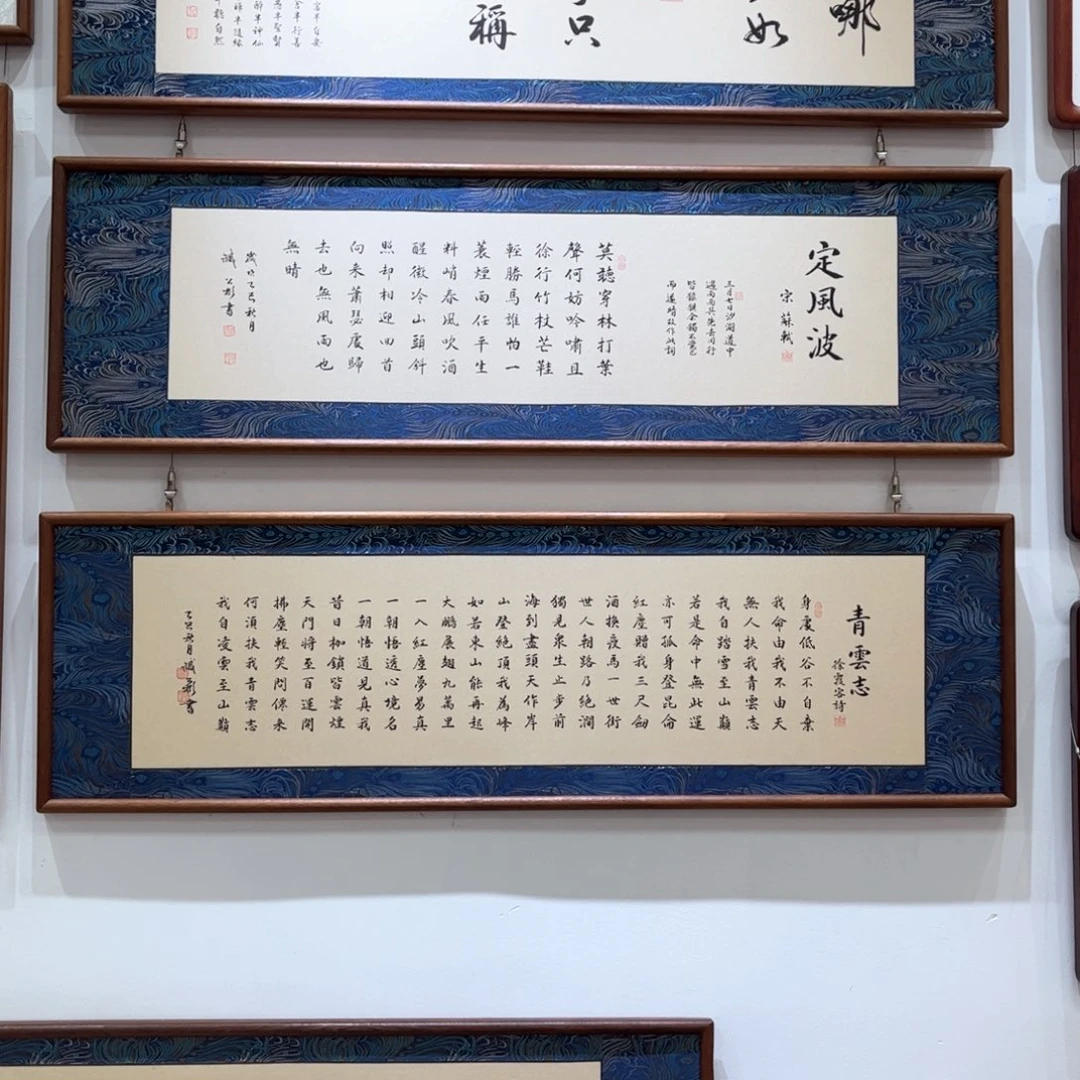 哪
如
只
稱
醉半神仙
定風波
宋 蘇軾
三月七日沙湖道中
遇雨雨具先去同行
皆狼狽余獨不覺已
而遂晴故作此詞
莫聽穿林打葉
聲何妨吟嘯且
徐行竹杖芒鞋
輕勝馬誰怕一
蓑煙雨任平生
料峭春風吹酒
醒微冷山頭斜
照却相迎回首
向來蕭瑟處歸
去也無風雨也
無晴
歲次乙巳秋月
書
青雲志
徐霞客詩
身處低谷不自棄
我命由我不由天
無人扶我青雲志
我自踏雪至山巔
若是命中無此運
亦可孤身登昆侖
紅塵贈我三尺劍
酒換瘦馬一世街
世人朝路乃絕澗
獨見眾生止步前
海到盡頭天作岸
山登絕頂我為峰
如若東山能再起
大鵬展翅九萬里
一入紅塵夢易真
一朝悟透心境名
一朝悟道見真我
昔日枷鎖皆雲煙
天門將至百運開
拂塵輕笑問來
何須扶我青雲志
我自凌雲至山巔
乙巳秋月 書